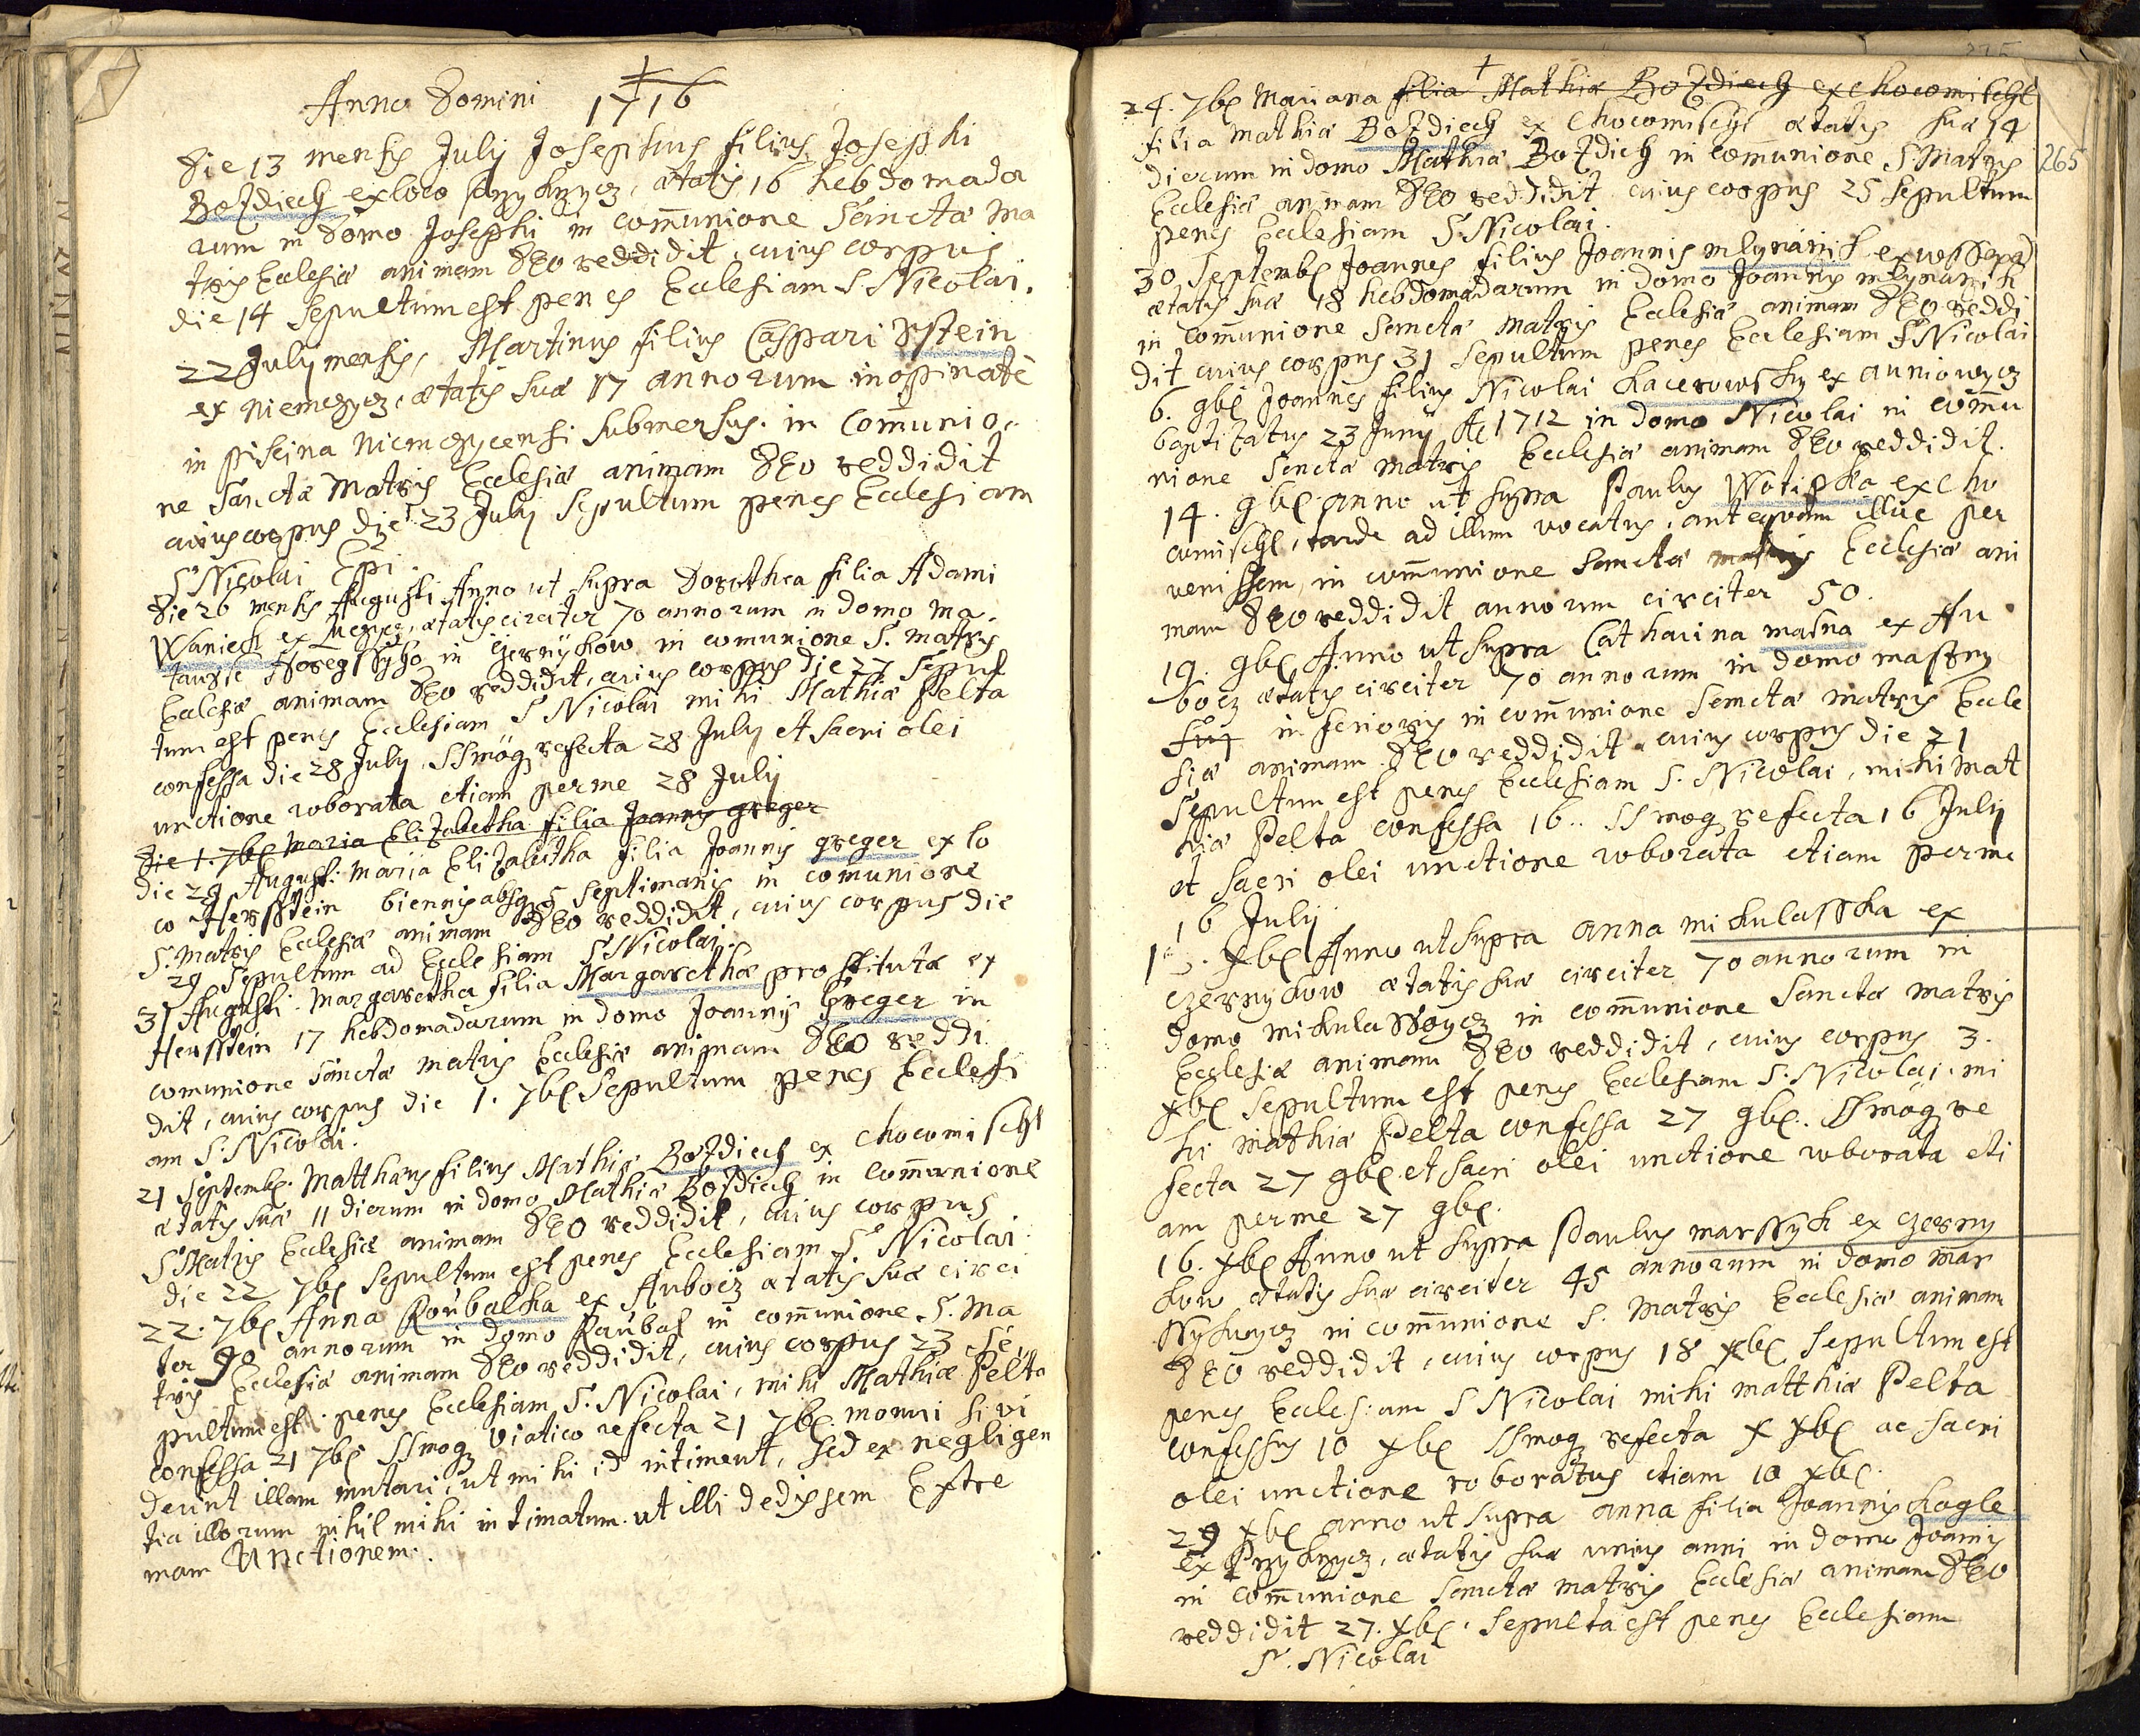 Anno Domini 1716
Die 13 mensis July Josephus filius Josephi
Bozdiech ex loco Przyknycz, ætatis 16 hebdomada
rum in domo Josephi in com̄unione Sanctæ Ma
tris Ecclesiæ animam DEO reddidit, cuius corpus
die 14 sepultum est penes Ecclesiam S. Nicolai.
22 July mensis, Martinus filius Caspari
ex Niemczycz, ætatis suæ 17 annorum inopinatè
in piscina Niemczycensi submersus. in Com̄unio,,
ne Sanctæ Matris Ecclesiæ animam DEO reddidit
cuius corpus die 23 July sepultum penes Ecclesiam
S. Nicolai Epi.
Die 26 mensis Augusti Anno ut supra Dorothea filia Adami
Waniek ex, ætatis circiter 70 annorum in domo Ma
in Czernykow in comunione S. Matris
Ecclesiæ animam DEO reddidit, cuius corpus die 27 sepul
tum est penes Ecclesiam S Nicolai mihi Mathiæ Pelta
confessa die 28 July, SSmoq refecta 28 July et sacri olei
unctione roborata etiam per me 28 July
Die 1. 7bς Maria Elizabetha filia Joannis greger
die 29 Augusti Maria Elizabetha filia Joannis greger ex lo
co Hersstein biennis absq 5 septimanis in comunione
S. Matris Ecclesiæ animam DEO reddidit, cuius corpus die
29 sepultum ad Ecclesiam S Nicolai.
31 Augusti Margaretha filia Margarethæ prostitutæ ex
Hersstein 17 hebdomadarum in domo Joannis Greger in
comunione sanctæ matris Ecclesiæ animam DEO reddi
dit, cuius corpus die 1. 7bς sepultum penes Ecclesi
am S: Nicolai.
21 Septembς. Matthæus filius Mathiæ Bozdiech ex Chocomischl
ætatis suæ 11 dierum in domo Mathiæ Bozdiech in Com̄unione
S Matris Ecclesiæ animam DEO reddidit, cuius corpus
die 22 7bς sepultum est penes Ecclesiam S. Nicolai.
22. 7bς Anna Roubalka ex Auboez ætatis suæ circi
ter 90 annorum in domo Raubal in com̄unione S. Ma
tris Ecclesiæ animam DEO reddidit, cuius corpus 23 se,,
pultum est penes Ecclesiam S. Nicolai, mihi Mathiæ Pelta
confessa 21 7bς SSmoq Viatico refecta 21 7bς. monui si vi
derint illam mutari, ut mihi id intiment, sed ex negligen
tia illorum nihil mihi intimatum. ut illi dedissem Extre
mam Unctionem.
24. 7bς Mariana filia Mathiæ Bozdiech ex Chocomischl
filia Mathiæ Bozdiech ex Chocomischl ætatis suæ 14
dierum in domo Mathiæ Bozdiech in com̄unione S. Matris
265
Ecclesiæ animam DEO reddidit cuius corpus 25 sepultum
penes Ecclesiam S. Nicolai.
30 Septembς Joannes filius Joannis mlynarzik ex
ætatis suæ 18 hebdomadarum in domo Joannis mlynarzik
in com̄unione Sanctæ Matris Ecclesiæ animam DEO reddi
dit cuius corpus 31 sepultum penes Ecclesiam S Nicolai
6. 9bς Joannes filius Nicolai Kacerowsky ex auniowycz
baptizatus 23 Juny Ao 1712 in domo Nicolai in com̄u
nione Sanctæ Matris Ecclesiæ animam DEO reddidit.
14. 9bς. anno ut supra Paulus Wotipka ex Cho
comischl, tarde ad illum vocatus, antequam illuc per
venissem, in com̄unione Sanctæ matris Ecclesiæ ani
mam DEO reddidit annorum circiter 50.
19. 9bς Anno ut supra Catharina masna ex Au
boez ætatis circiter 70 annorum in domo masny
in senioris in com̄unione Sanctæ matris Eccle
siæ animam DEO reddidit, cuius corpus die 21
sepultum est penes Ecclesiam S. Nicolai, mihi Mat
hiæ Pelta confessa 16.. SSmoq refecta 16 July
et sacri olei unctione roborata etiam per me
16 July
1. Xbς Anno ut supra anna mikulasska ex
Czernykow ætatis suæ circiter 70 annorum in
domo mikulassoycz in com̄unione Sanctæ matris
Ecclesiæ animam DEO reddidit, cuius corpus 3.
Xbς sepultum est penes Ecclesiam S. Nicolai. mi
hi mathiæ Pelta confessa 27 9bς. SSmoq re
fecta 27 9bς. et sacri olei unctione roborata eti
am per me 27 9bς.
16. Xbς Anno ut supra Paulus marssyk ex Czerny
kow ætatis suæ circiter 45 annorum in domo mar
ssykoycz in com̄unione S. Matris Ecclesiæ animam
DEO reddidit, cuius corpus 18 Xbς sepultum est
penes Ecclesiam S Nicolai mihi matthiæ Pelta
confessus 10 Xbς SSmoq refecta X Xbς ac sacri
olei unctione roboratus etiam 10 Xbς.
29 Xbς anno ut supra anna filia Joannis Kogle
ex Przyknycz, ætatis suæ unius anni in domo Joannis
in com̄unione Sanctæ Matris Ecclesiæ animam DEO
reddidit 27. Xbς. sepulta est penes Ecclesiam
S. Nicolai